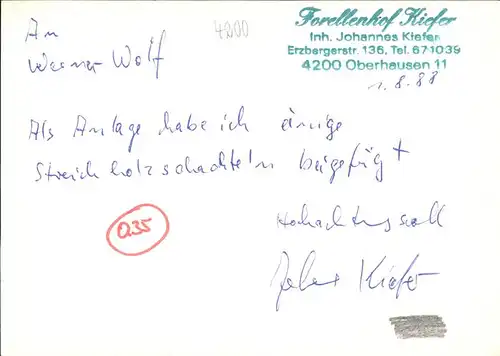 An
Werner Wolf
4200
Forellenhof Kiefer
Inh. Johannes Kiefer
Erzbergerstr. 136, Tel. 671039
4200 Oberhausen 11
1.8.88
Als Anlage habe ich einige
Streichholzschachteln beigefügt
0.35
Hochachtungsvoll
Kiefer